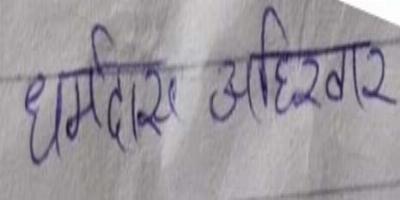 धर्मदास अहिरवार